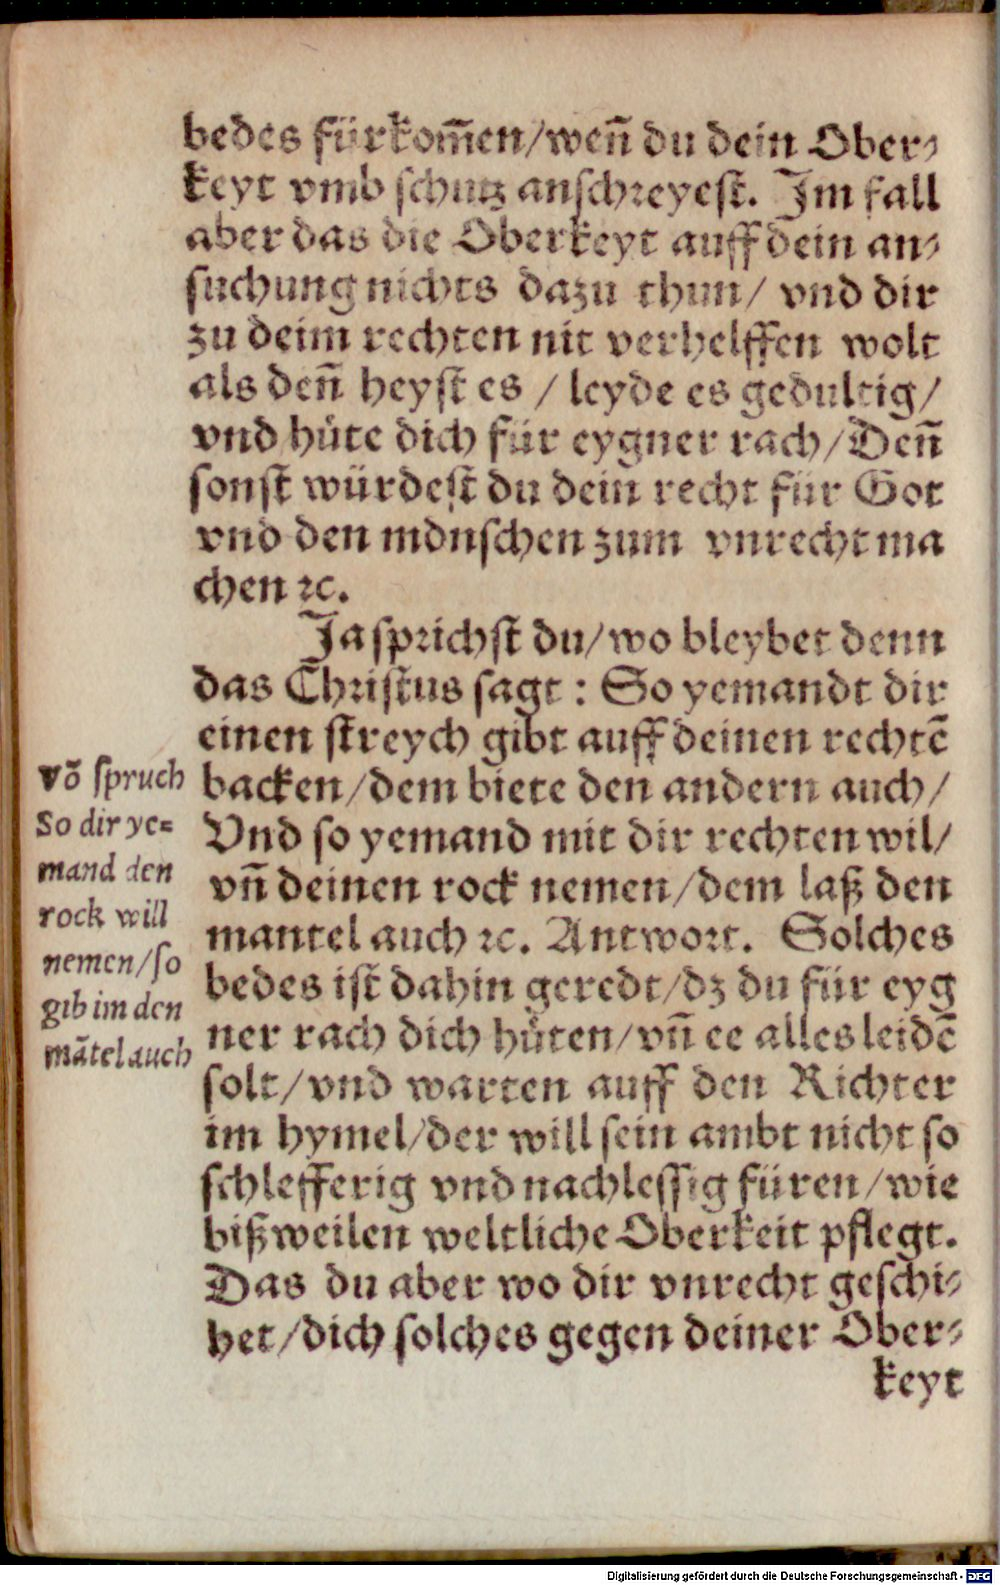 bedes fürkom̃en/wen̄ du dein Ober⸗
keyt vmb schutz anschreyest. Im fall
aber das die Oberkeyt auff dein an⸗
suchung nichts dazu thun/ vnd dir
zu deim rechten nit verhelffen wolt
als den̄ heyst es / leyde es gedultig/
vnd hüte dich für eygner rach/Den̄
sonst würdest du dein recht für Got
vnd den mdnschen zum vnrecht ma
chen ꝛc.
Ja sprichst du/wo bleybet denn
das Christus sagt : So yemandt dir
einen streych gibt auff deinen rechtē
backen/dem biete den andern auch/
Vnd so yemand mit dir rechten wil/
vn̄ deinen rock nemen/dem laß den
mantel auch ꝛc. Antwort. Solches
bedes ist dahin geredt/dz du für eyg
ner rach dich hüten/vn̄ ee alles leidē
solt/vnd warten auff den Richter
im hymel/der will sein ambt nicht so
schlefferig vnd nachlessig füren/wie
bißweilen weltliche Oberkeit pflegt.
Das du aber wo dir vnrecht geschi⸗
het/dich solches gegen deiner Ober⸗
keyt
Vō spruch
So dir ye⸗
mand den
rock will
nemen/so
gib im den
mātel auch
Digitalisierung gefördert durch die Deutsche Forschungsgemeinschaft - DFG